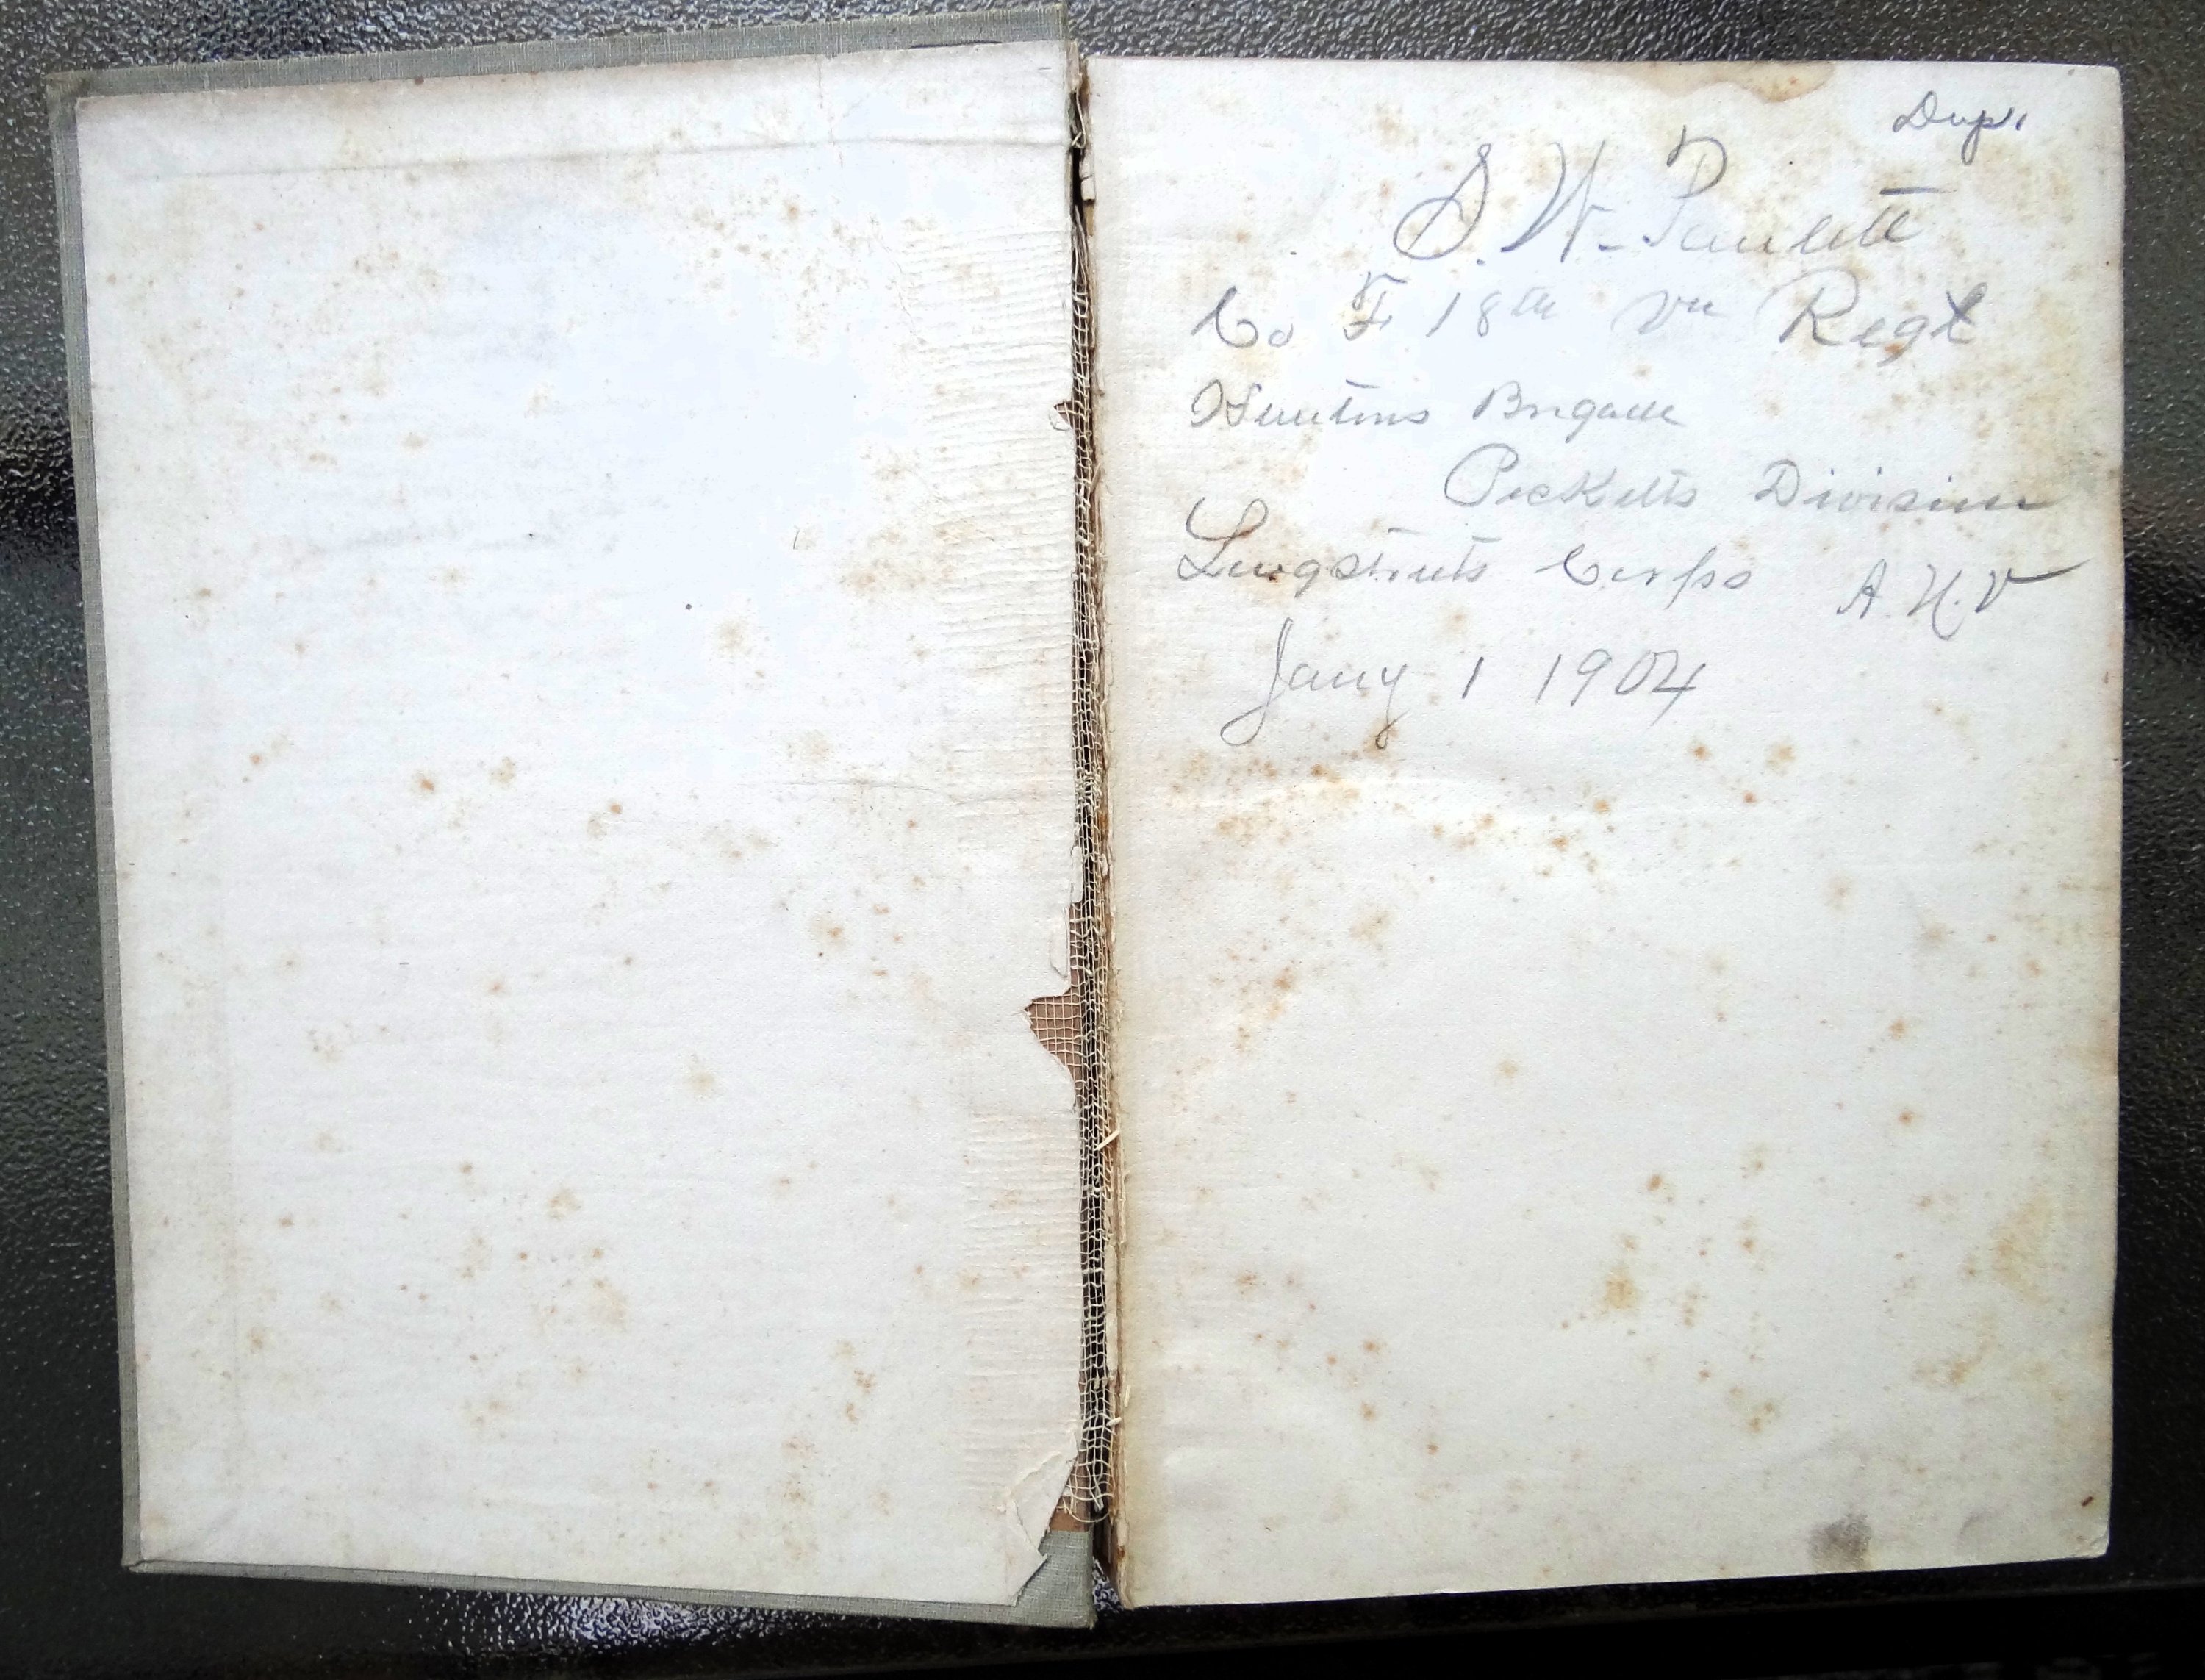 Dup.
S. W. Paulett
Co F 18th Va Regt
Huntons Brigade
Picketts Division
Longstreets Corps A. N. V
Jany 1 1904